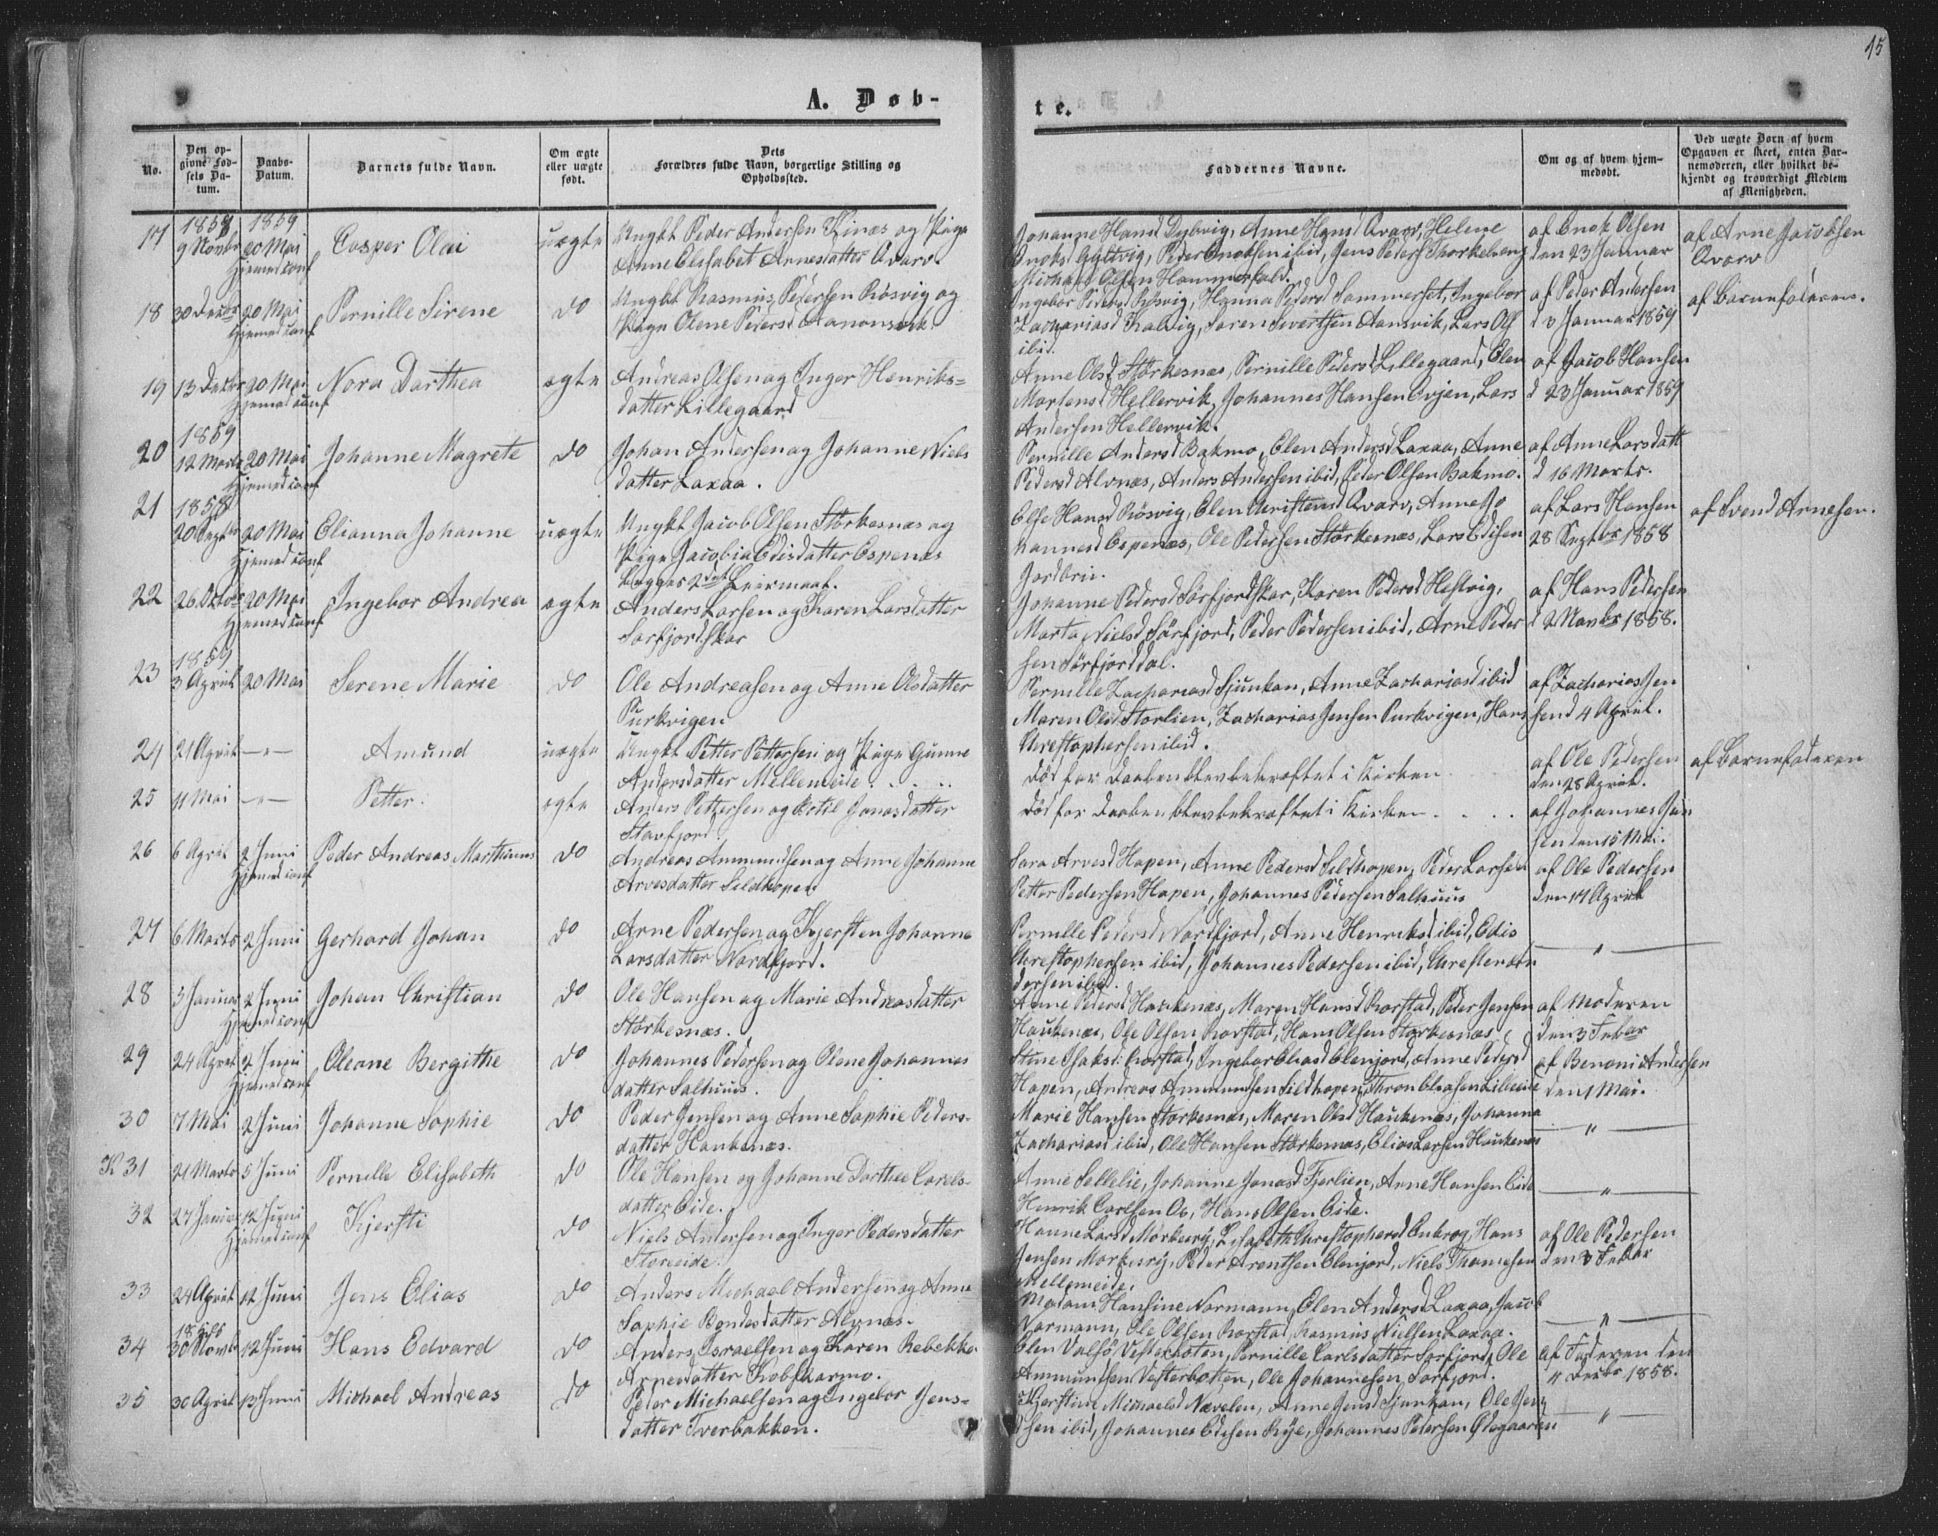 15
A. Døb-
te.
No.
Den opgivne Fødsels Datum.
Daabs-Datum.
Barnets fulde Navn.
Om ægte eller uægte født.
Dets Forældres fulde Navn, borgerlige Stilling og Opholdssted.
Faddernes Navne.
Om og af hvem hjemmedøbt.
Ved uægte Børn af hvem Opgaven er skeet, enten Barnemoderen, eller hvilket bekjendt og troværdigt Medlem af Menigheden.
17 1858 9 Novbr 1859 20 Mai Hjemed conf Casper Olai uægte Ungkl Peder Andersen Kinæs og Pige
Anne Elisabet Arnesdatter Qvarv.
Johanne Hansd Dybvig, Anne Hansd Qvarv, Helene
Enoksd Gyltvig, Peder Enoksen ibid, Jens Peders Thorkelseng
Michael Olsen Hammerfald.
af Enok Olsen
den 23 Januar
af Arne Jacobsen
Qvarv
18 30 Decbr 20 Mai Hjemed conf Pernille Sirene do Ungkl Rasmus Pedersen Røsvig og
Pige Olene Pedersd Aanonsvik.
Ingebor Peders Røsvig, Hanna Pedersd Sommerset, Ingebor
Zachariasd Kalvig, Søren Sivertsen Aansvik, Lars Ols
ibid.
af Peder Andersen
d 3 Januar 1859
af Barnefaderen.
19 13 Decbr 20 Mai Hjemed conf Nora Darthea ægte Andreas Olsen og Inger Henriks-
datter Lillegaard
Anne Olsd Størkesnæs, Pernille Pedersd Lillegaard, Elen
Martensd Hellervik, Johannes Hansen Evjen, Lars
Andersen Hellervik.
af Jacob Hansen
d 23 Januar 1859
20 1859 12 Marts 20 Mai Hjemed conf Johanne Magrete do Johan Andersen og Johanne Niels
datter Laxaa.
Pernille Andersd Bakmo, Elen Andersd Laxaa, Anne
Pedersd Alvnæs, Anders Andersen ibid, Peder Olsen Bakmo.
af Anne Larsdatt
d 16 Marts.
21 1858 20 Septbr 20 Mai Hjemed conf Elianna Johanne uægte Ungkl Jacob Olsen Størkesnæs og
Pige Jacobia Edisdatter Espenæs
Begges 2det Leiermaal.
Else Hansd Røsvig, Elen Christensd Qvarv, Anne Jo
hannesd Espenæs, Ole Pedersen Størkesnæs, Lars Edisen
Jordbru.
af Lars Hansen
28 Septbr 1858
af Svend Arnesen.
22 26 Octbr 20 Mai Hjemed conf Ingebor Andrea ægte Anders Larsen og Karen Larsdatter
Sørfjordskar
Johanne Pedersd Sørfjordskar, Karen Pedersd Hestvig,
Marta Nielsd Sørfjord, Peder Pedersen ibid, Arne Peder
sen Sørfjorddal.
af Hans Pedersen
d 2 Novbr 1858.
23 1859 3 April 20 Mai Serene Marie do Ole Andreasen og Anne Olsdatter
Purkvigen
Pernille Zachariasd Sjunkan, Anne Zachariasd ibid
Maren Olsd Storlien, Zacharias Jensen Purkvigen, Hans
Christophersen ibid.
af Zacharias Jen
sen d 4 April.
24 21 April —"— Amund uægte Ungkl Petter Pettersen og Pige Gunne
Andersdatter Mellemeide
Død før Daaben blev bekræftet i Kirken
af Ole Pedersen
den 28 April.
af Barnefaderen
25 11 Mai —"— Petter. ægte Anders Pettersen og Botil Jonasdatter
Stavfjord.
Død før Daaben blev bekræftet i Kirken
af Johannes Jen
sen den 15 Mai.
26 6 April 2 Juni Hjemed conf Peder Andreas Marthinus do Andreas Ammundsen og Anne Johanne
Arvesdatter Sildhopen
Sara Arvesd Hopen, Anne Pedersd Sildhopen, Peder Larsen
Petter Pedersen Hopen, Johannes Pedersen Salhuus
af Ole Pedersen
den 17 April
27 6 Marts 2 Juni Gerhard Johan do Arne Pedersen og Kjersten Johanne
Larsdatter Nordfjord.
Pernille Pedersd Nordfjord, Anne Henriksd ibid, Edis
Christophersen ibid, Johannes Pedersen ibid, Christen An
dersen ibid.
—"—
28 3 Januar 2 Juni Hjemed conf Johan Christian do Ole Hansen og Marie Andreasdatter
Størkesnæs.
Anne Pedersd Haukenæs, Maren Hansd Rørstad, Peder Jensen
Haukenæs, Ole Olsen Rørstad, Hans Olsen Størkesnæs
af Moderen
den 3 Febar
29 24 April 2 Juni Hjemed conf Oleane Bergithe do Johannes Pedersen og Olene Johannes
datter Salhuus.
Stine Isaksd Rørstad, Ingebor Eliasd Elenjord, Anne Pedersd
Hopen, Andreas Ammundsen Sildhopen, Thron Eliasen Lileeide
af Benoni Andersen
den 1 Mai.
30 7 Mai 2 Juni Johanne Sophie do Peder Jensen og Anne Sophie Peders-
datter Haukenæs.
Marie Hansen Størkesnæs, Maren Olsd Haukenæs, Johanna
Zachariasd ibid, Ole Hansen Størkesnæs, Elias Larsen Haukenæs
—"—
K 31 21 Marts 5 Juni Pernille Elisabeth do Ole Hansen og Johanne Dorthea Carels-
datter Eide.
Anne Sellelie, Johanne Jonasd Fjerlien, Arne Hansen Eide
Henrik Carlsen Os, Hans Olsen Eide.
—"—
32 27 Januar 12 Juni Hjemed conf Kjersti do Niels Andersen og Inger Pedersdatter
Storeide.
Hanne Larsd Mørksrj, Lisabeth Christophersd Enkrog, Hans
Jensen Mørksrj, Peder Arentsen Elenjord, Niels Thomesen
Mellemeide.
af Ole Pedersen
den 3 Febar
33 24 April 12 Juni Jens Elias do Anders Michael Andersen og Anne
Sophie Bondesdatter Alvnæs.
Madam Hansine Normann, Elen Andersd Laxaa, Jacob
Normann, Ole Olsen Rørstad, Rasmus Nielsen Laxaa.
—"—
34 1858 30 Novb 12 Juni Hans Edvard do Anders Israelsen og Karen Rebekka
Arnesdatter Kobskarmo.
Elen Valsø Vesterbotten, Pernille Carlsdatter Sørfjord, Ole
Ammundsen Vesterbotten, Ole Johannesen Sørfjord.
af Faderen den
4 Decbr 1858.
35 30 April 13 Juni Michael Andreas do Peter Michaelsen og Ingebor Jens-
datter Tverbakken.
Kjerstine Michaelsd Nævelen, Anne Jensd Sjunkan, Ole Jen
sen ibid, Johannes Edisen Rye, Johannes Pedersen Ødegaarden
—"—